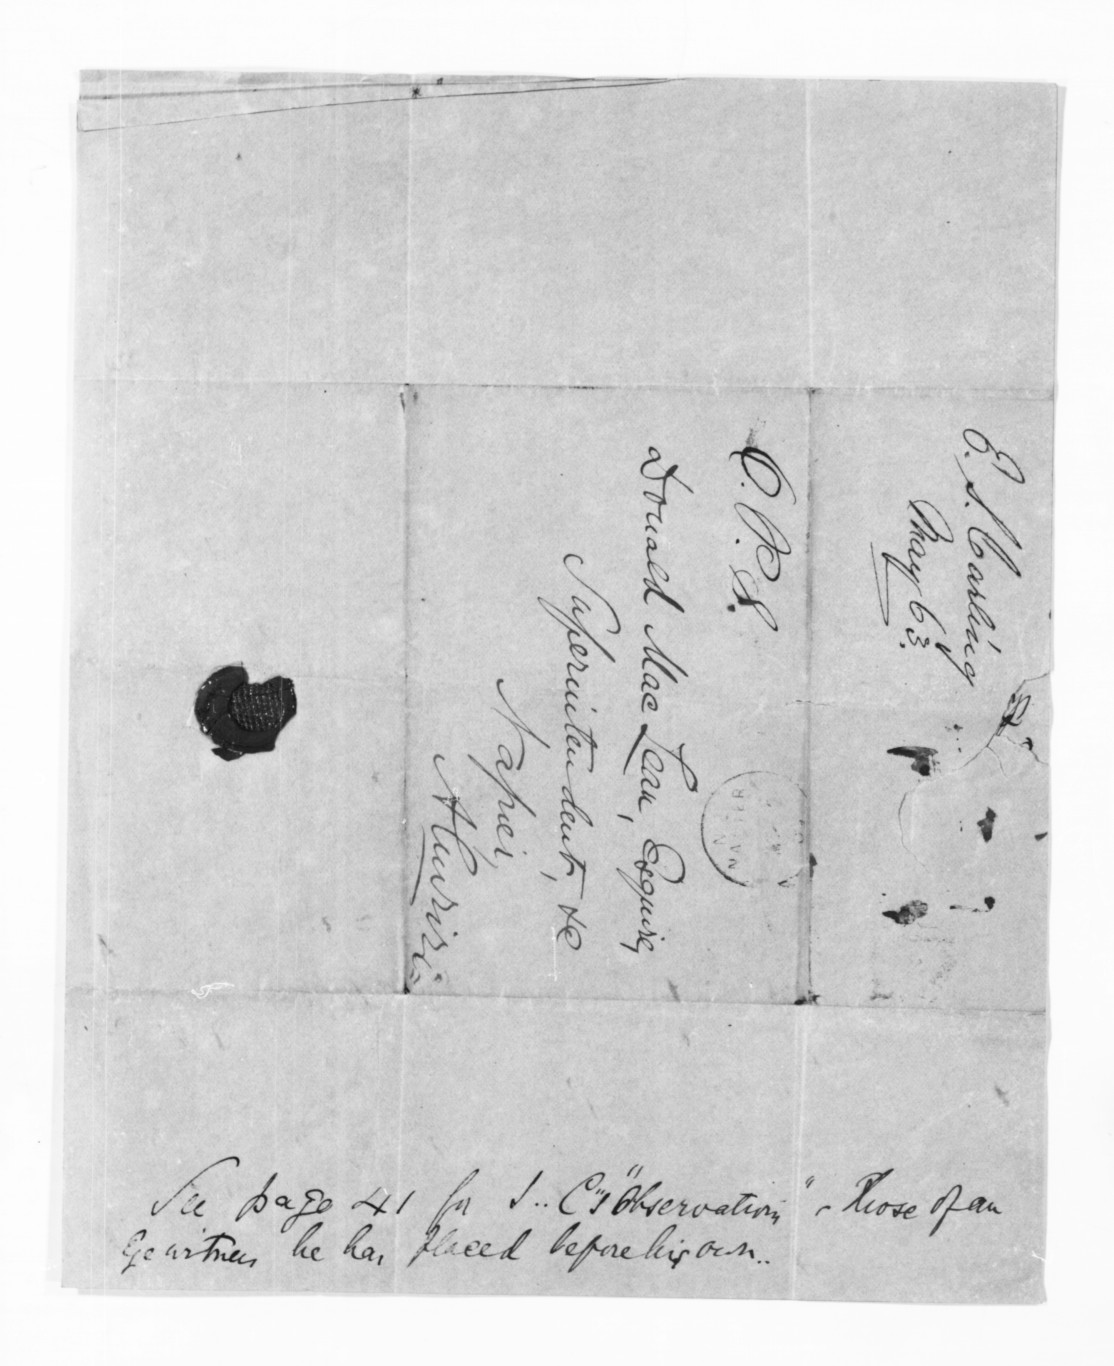 E. S. Curling
May 63.
O.P.S.
Donald Mac Lean, Esquire,
Superintendent, &c
Napier,
Ahuriri.
See page 41 for S.. C's "Observation" - Those of an
Eyewitness he has placed before his own..